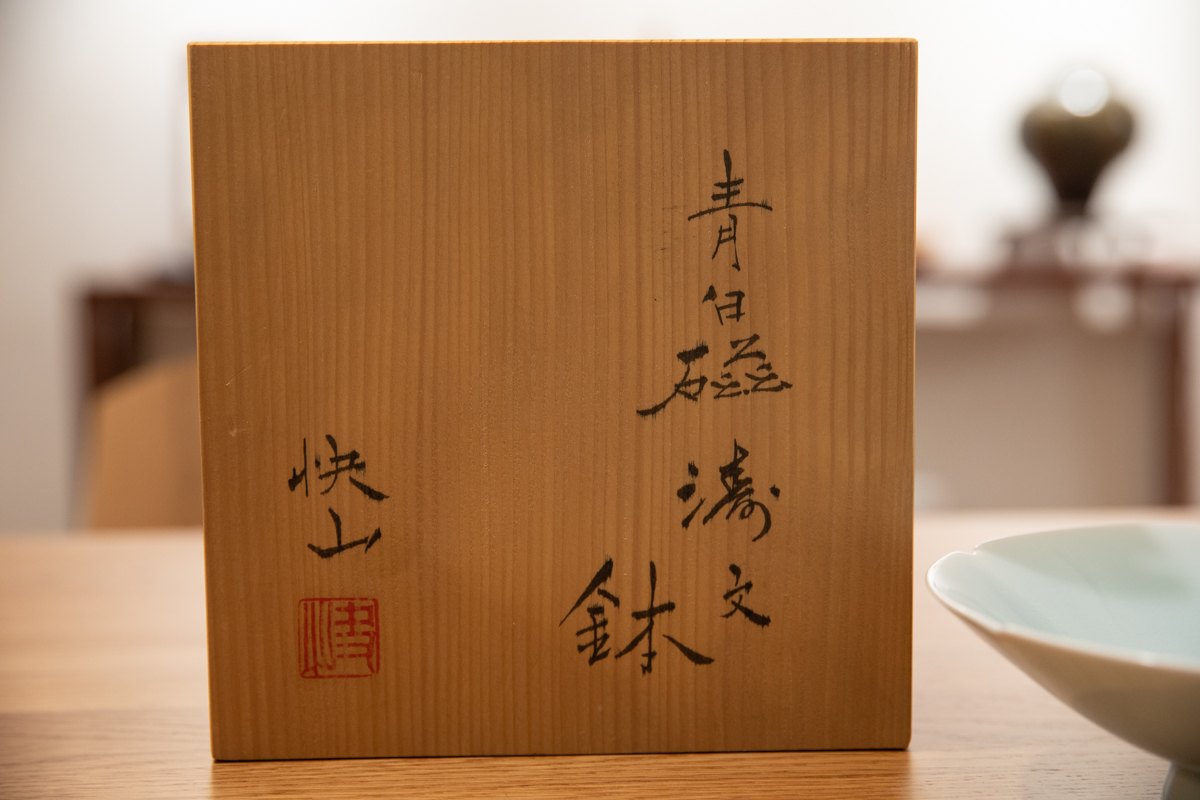 青白磁
濤文
鉢
快山